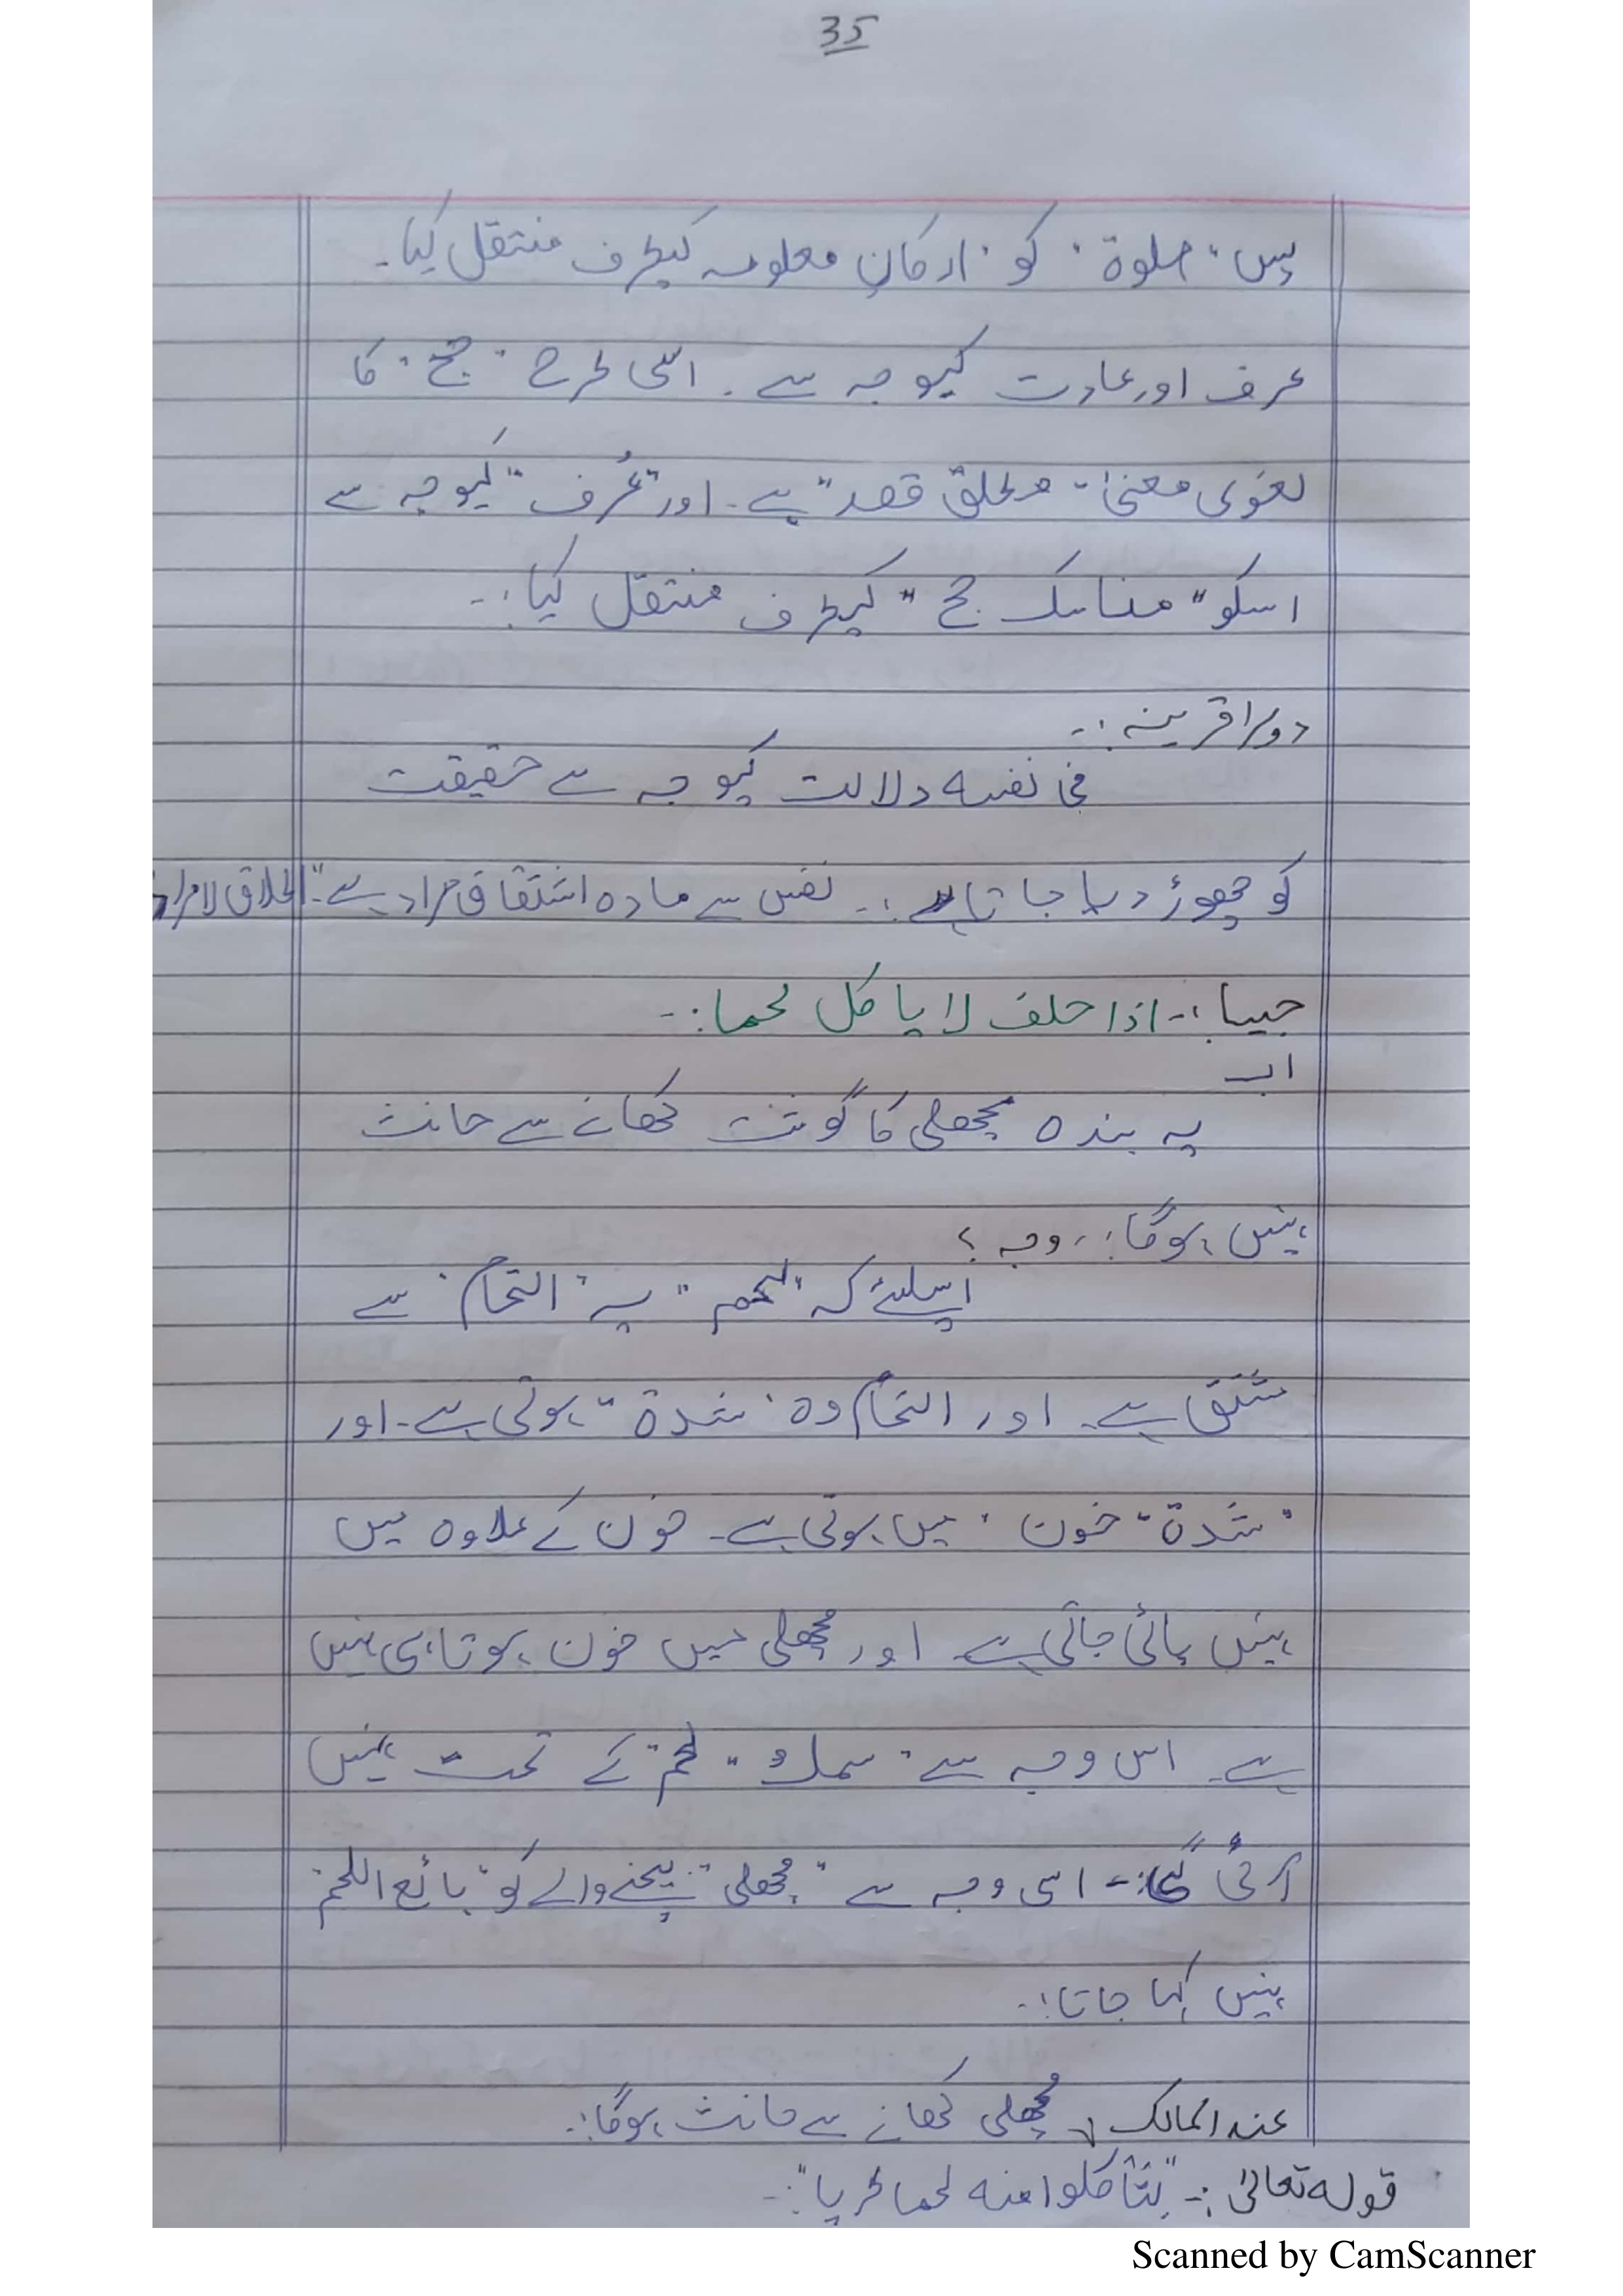 35
پس "صلوة" کو "ارکانِ معلومہ کیطرف منتقل کیا۔
عرف اور عادت کیوجہ سے۔ اسی طرح "حج" کا
لغوی معنیٰ "مطلق قصد" ہے۔ اور "عُرف" کیوجہ سے
اسکو "مناسک حج" کیطرف منتقل کیا:۔
دوسرا قرینہ:۔
فی نفسہ دلالت کیوجہ سے حقیقت
کو چھوڑ دیا جاتا ہے:۔ نفس سے مادہ اشتقاق مراد ہے۔ "اطلاق لامراد
جیسا:۔ اذا حلف لا یاکل لحما:۔
اب
یہ بندہ مچھلی کا گوشت کھانے سے حانث
نہیں ہوگا:، وجہ؟
اسلئے کہ "لحم" یہ "التحام" سے
مشتق ہے۔ اور التحام وہ "شدة" ہوتی ہے۔ اور
"شدة" خون" میں ہوتی ہے۔ خون کے علاوہ میں
نہیں پائی جاتی ہے۔ اور مچھلی میں خون ہوتا ہی نہیں
ہے۔ اس وجہ سے "سمک" "لحم" کے تحت نہیں
آئی گی:۔ اسی وجہ سے "مچھلی" بیچنے والے کو "بائع اللحم"
نہیں کہا جاتا:۔
عند المالک مچھلی کھانے سے حانث ہوگا:۔
قولہ تعالیٰ:۔ "لتأکلوا منہ لحما طریا":۔
Scanned by CamScanner